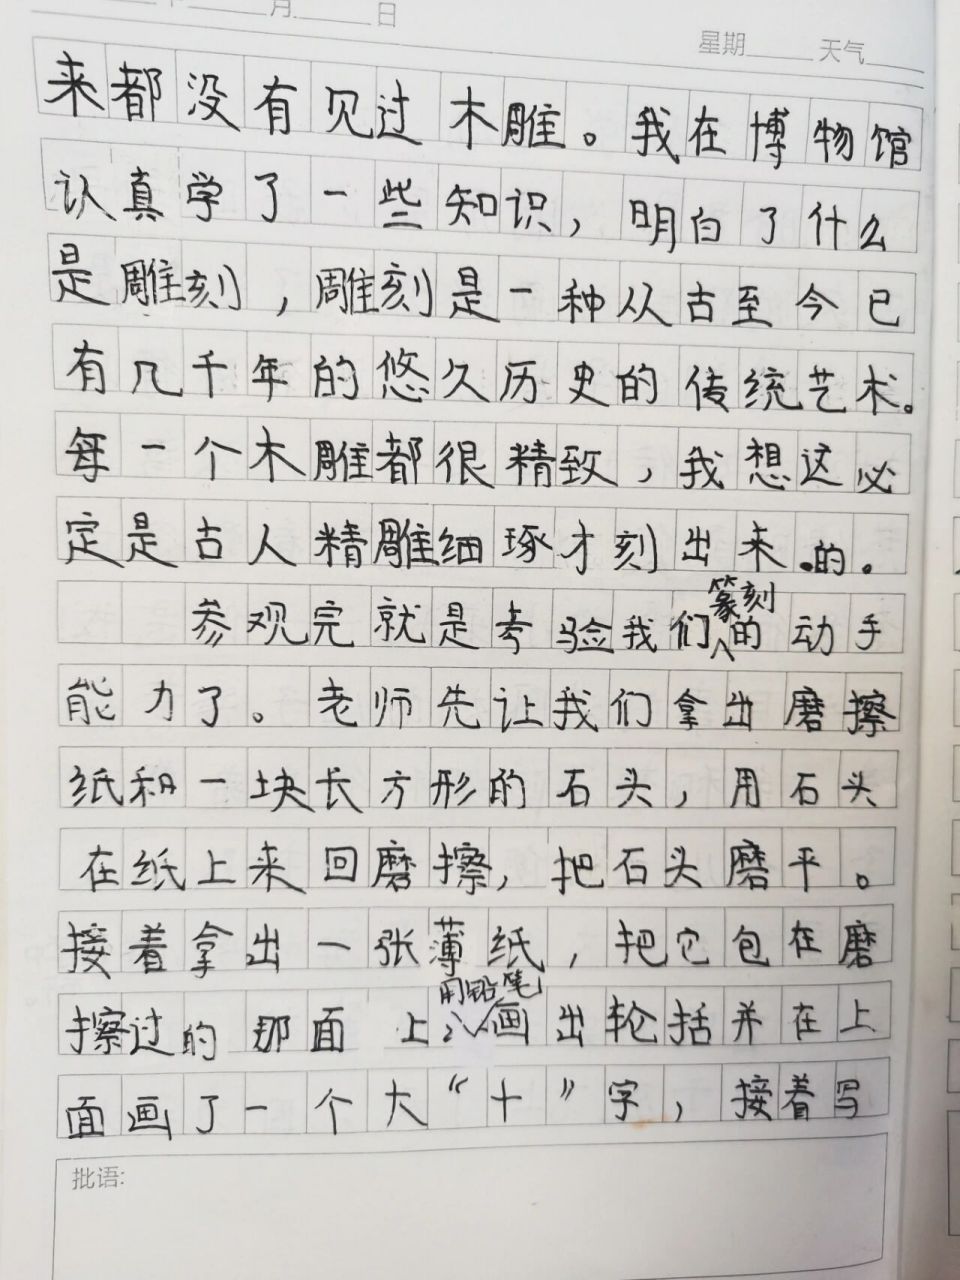 月 日
星期 天气
来都没有见过木雕。我在博物馆
认真学了一些知识，明白了什么
是雕刻，雕刻是一种从古至今已
有几千年的悠久历史的传统艺术。
每一个木雕都很精致，我想这必
定是古人精雕细琢才刻出来的。
参观完就是考验我们篆刻的动手
能力了。老师先让我们拿出磨擦
纸和一块长方形的石头，用石头
在纸上来回磨擦，把石头磨平。
接着拿出一张薄纸，把它包在磨
擦过的那面上，用铅笔画出轮括并在上
面画了一个大“十”字，接着写
批语: